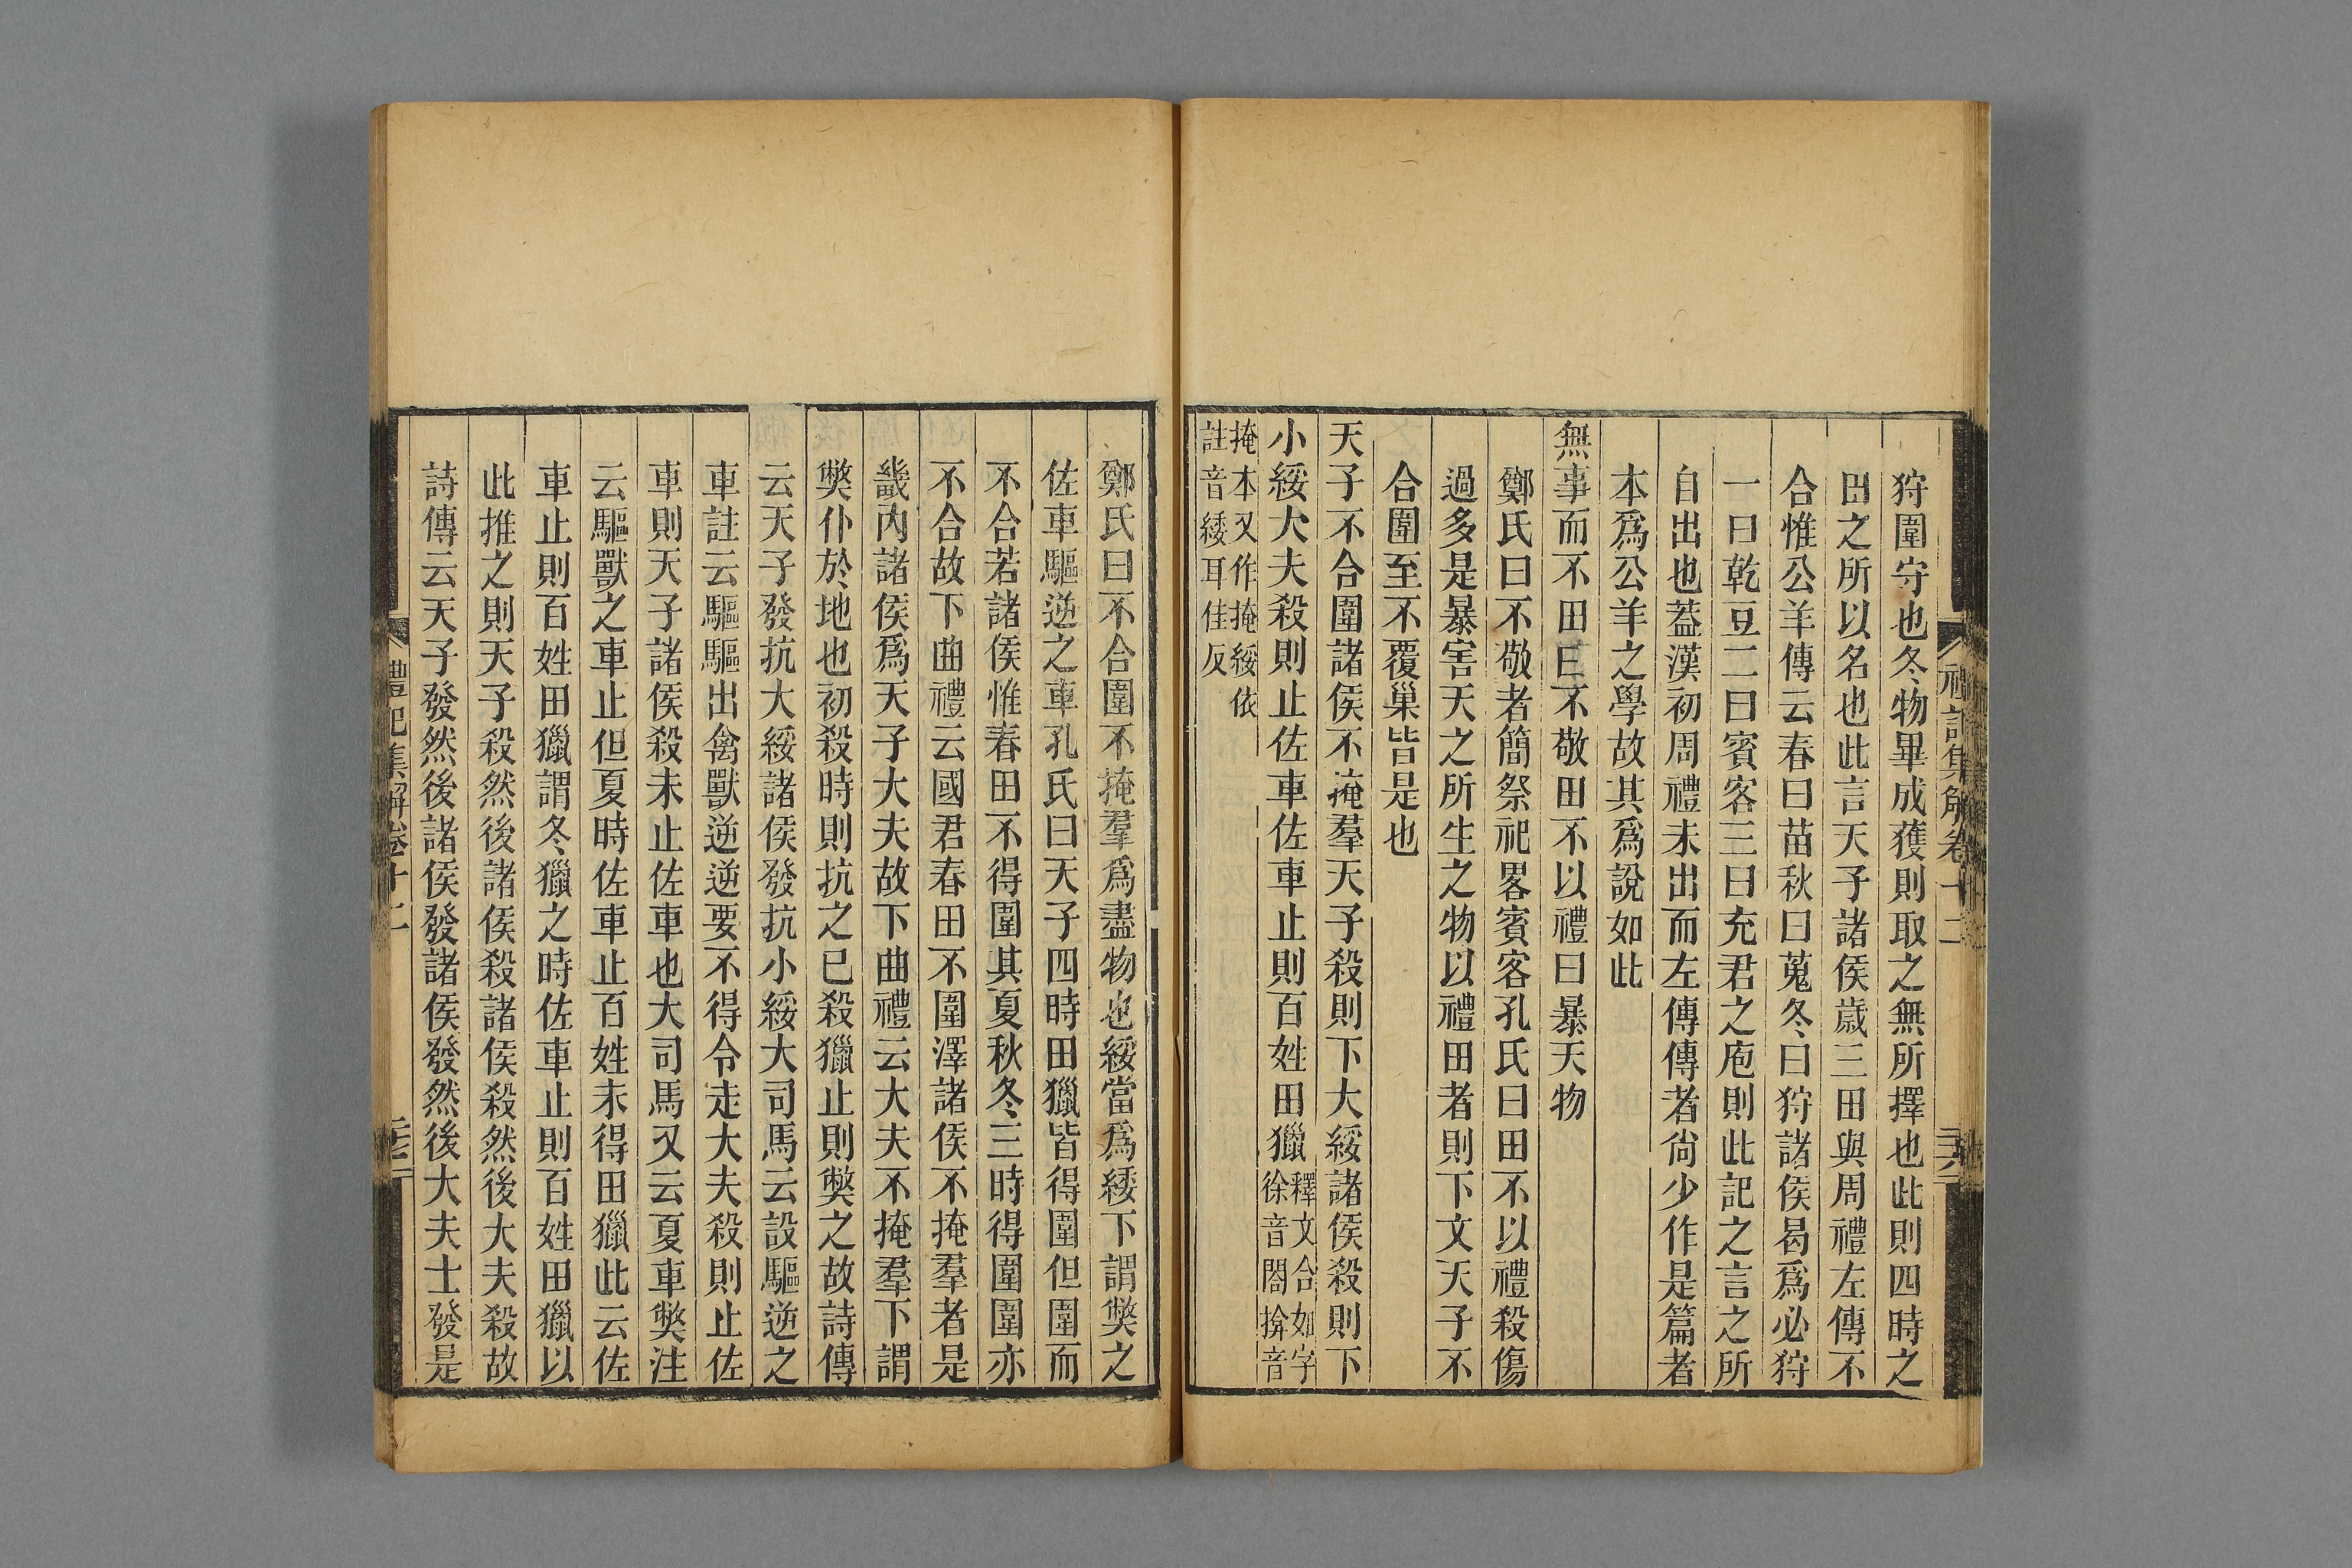 狩圍守也冬物畢成獲則取之無所擇也此則四時之
田之所以名也此言天子諸侯歲三田與周禮左傳不
合惟公羊傳云春曰苗秋曰蒐冬曰狩諸侯曷爲必狩
一曰乾豆二曰賓客三曰充君之庖則此記之言之所
自出也蓋漢初周禮未出而左傳傳者尙少作是篇者
本爲公羊之學故其爲說如此
無事而不田曰不敬田不以禮曰暴天物
鄭氏曰不敬者簡祭祀畧賓客孔氏曰田不以禮殺傷
過多是暴害天之所生之物以禮田者則下文天子不
合圍至不覆巢皆是也
天子不合圍諸侯不掩羣天子殺則下大綏諸侯殺則下
小綏大夫殺則止佐車佐車止則百姓田獵釋文合如字徐音閤揜音
掩本又作掩綏依註音緌耳佳反
鄭氏曰不合圍不掩羣爲盡物也綏當爲緌下謂獘之
佐車驅逆之車孔氏曰天子四時田獵皆得圍但圍而
不合若諸侯惟春田不得圍其夏秋冬三時得圍圍亦
不合故下曲禮云國君春田不圍澤諸侯不掩羣者是
畿內諸侯爲天子大夫故下曲禮云大夫不掩羣下謂
獘仆於地也初殺時則抗之已殺獵止則獘之故詩傳
云天子發抗大綏諸侯發抗小綏大司馬云設驅逆之
車註云驅驅出禽獸逆逆要不得令走大夫殺則止佐
車則天子諸侯殺未止佐車也大司馬又云夏車獘注
云驅獸之車止但夏時佐車止百姓未得田獵此云佐
車止則百姓田獵謂冬獵之時佐車止則百姓田獵以
此推之則天子殺然後諸侯殺諸侯殺然後大夫殺故
詩傳云天子發然後諸侯發諸侯發然後大夫士發是
禮記集解卷十二